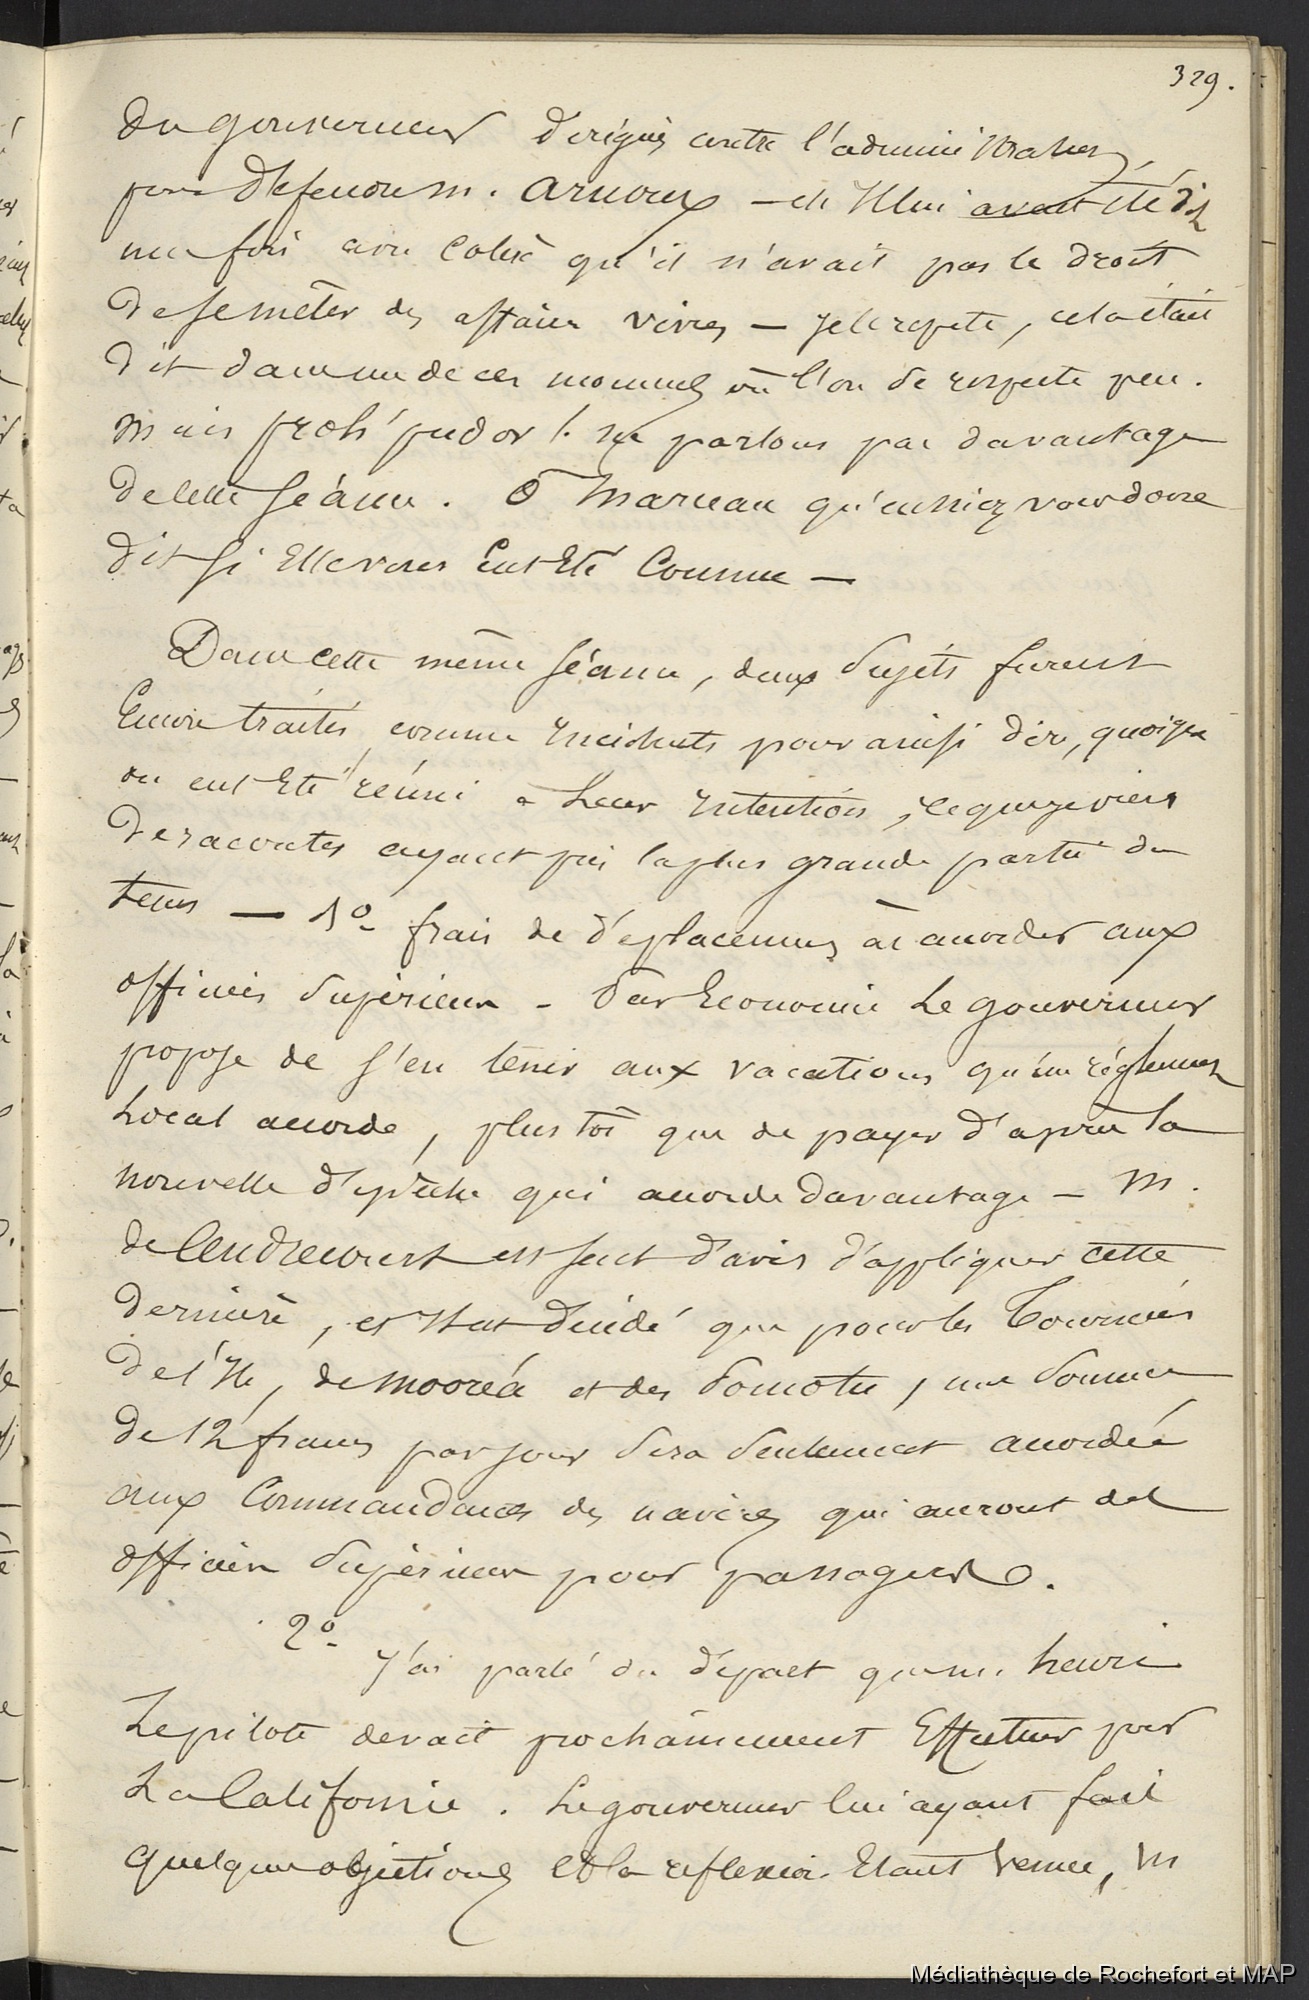 329.
du gouverneur dirigées contre l'administration,
pour défendre m. arnoux — et Il lui avait été dit
une fois avec colère qu'il n'avait pas le droit
de se mêler des affaires vivres — je le repete, cela était
dit dans un de ces moments où l'on se respecte peu.
mais proh' pudor ! ne parlons pas davantage
de cette séance. O Marceau qu'eussiez vous donc
dit si Elle vous Eut Eté Connue —
Dans cette même séance, deux sujets furent
Encore traités comme Incidents pour ainsi dire, quoique
on eut Eté réuni à Leur Intention, ce que je viens
de raconter ayant pris la plus grande partie du
tems — 1o frais de déplacements à accorder aux
officiers supérieurs - Par Economie Le gouverneur
propose de s'en tenir aux vacations qu'un réglement
Local accorde, plus tôt que de payer d'après la
nouvelle dépêche qui accorde davantage — M.
de Cendrecourt est seul d'avis d'appliquer cette
dernière, et Il est décidé que pour les Tournées
de l'Ile, de mooréa et des Pomotu, une somme
de 12 francs par jour sera seulement accordée
aux Commandants des navires qui auront des
officiers supérieurs pour passagers.
2o J'ai parlé du départ que m. henri
Le pilote devait prochainement Effectuer pour
La Californie. Le gouverneur lui ayant fait
quelques objections et la reflexion Etant venue, M
Médiathèque de Rochefort et MAP